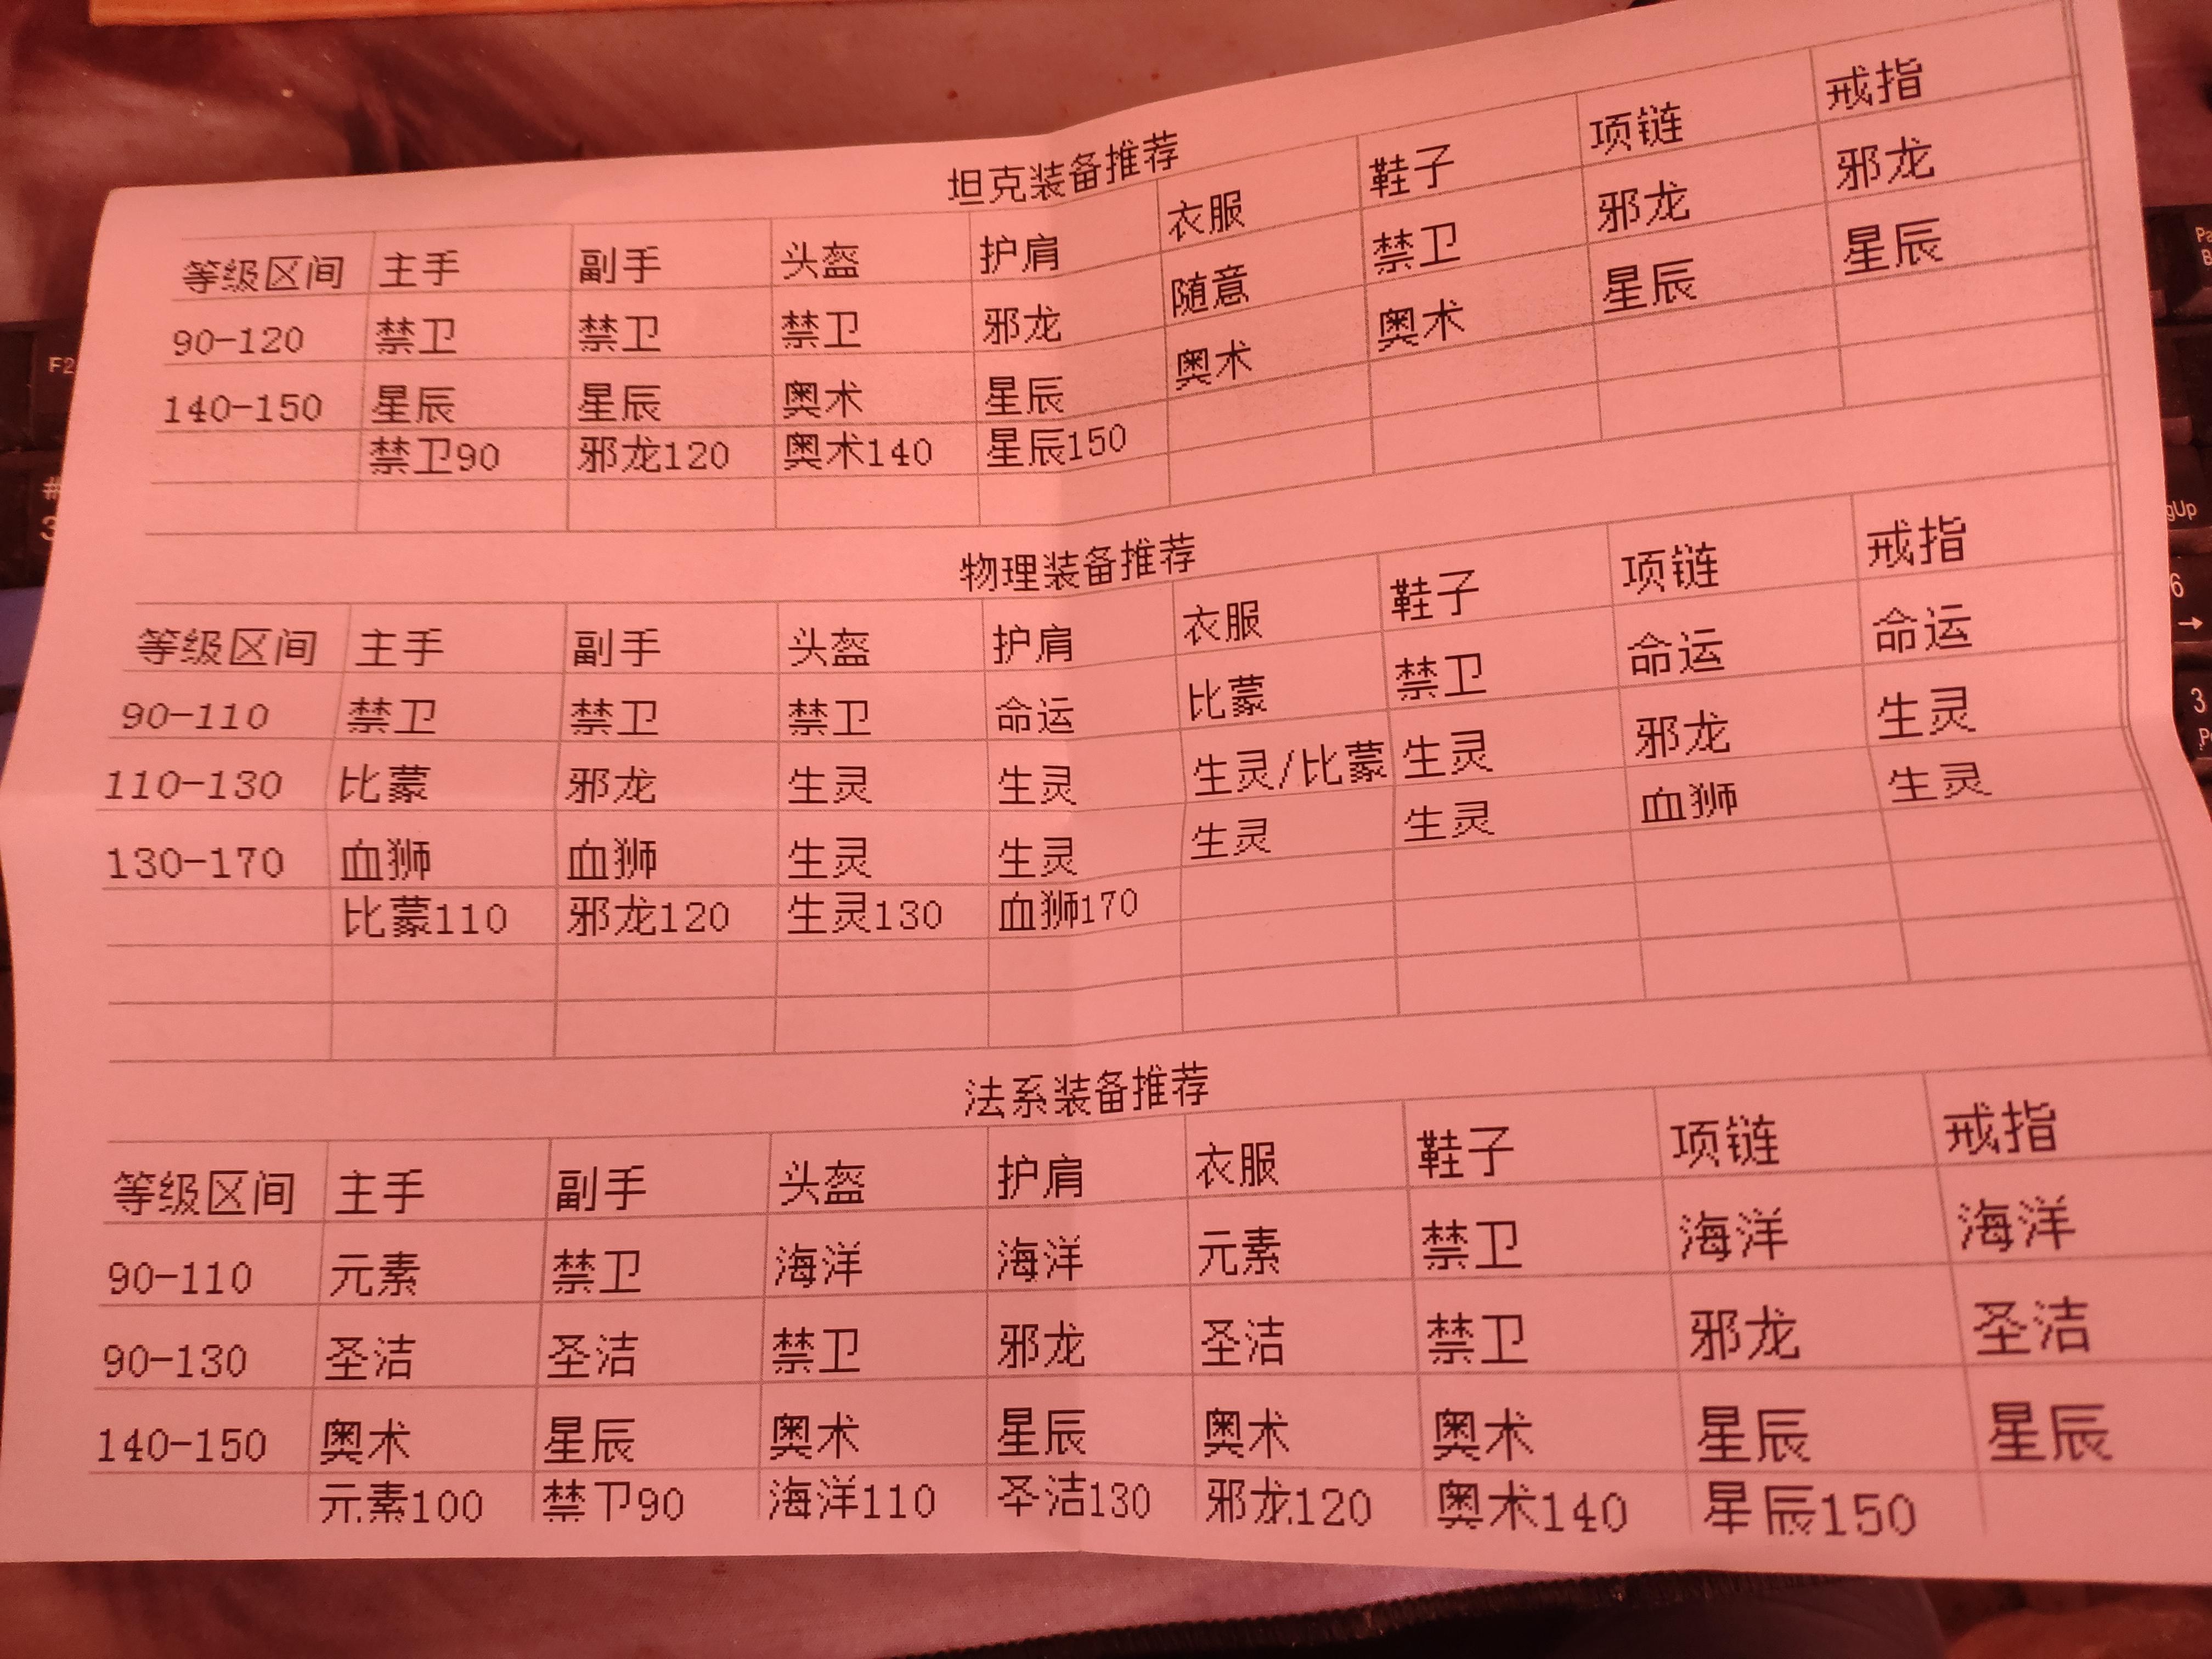 坦克装备推荐
等级区间 主手 副手 头盔 护肩 衣服 鞋子 项链 戒指
90-120 禁卫 禁卫 禁卫 邪龙 随意 禁卫 邪龙 邪龙
140-150 星辰 星辰 奥术 星辰 奥术 奥术 星辰 星辰
禁卫90 邪龙120 奥术140 星辰150
物理装备推荐
等级区间 主手 副手 头盔 护肩 衣服 鞋子 项链 戒指
90-110 禁卫 禁卫 禁卫 命运 比蒙 禁卫 命运 命运
110-130 比蒙 邪龙 生灵 生灵 生灵/比蒙 生灵 邪龙 生灵
130-170 血狮 血狮 生灵 生灵 生灵 生灵 血狮 生灵
比蒙110 邪龙120 生灵130 血狮170
法系装备推荐
等级区间 主手 副手 头盔 护肩 衣服 鞋子 项链 戒指
90-110 元素 禁卫 海洋 海洋 元素 禁卫 海洋 海洋
90-130 圣洁 圣洁 禁卫 邪龙 圣洁 禁卫 邪龙 圣洁
140-150 奥术 星辰 奥术 星辰 奥术 奥术 星辰 星辰
元素100 禁卫90 海洋110 圣洁130 邪龙120 奥术140 星辰150
F2
#
3
6
→
3